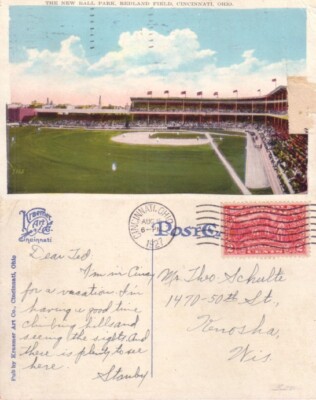 THE NEW BALL PARK, REDLAND FIELD, CINCINNATI, OHIO.
Kraemer
Art Co.
Cincinnati
CINCINNATI, OHIO
AUG
6-
1927
Post C
Pub by Kraemer Art Co., Cincinnati, Ohio
Dear Ted
I'm in Cincy
for a vacation. I'm
having a good time
climbing hills and
seeing the sights. And
there is plenty to see
here.
Stanley
Mr. Theo Schulte
1470-50th St,
Kenosha,
Wis.